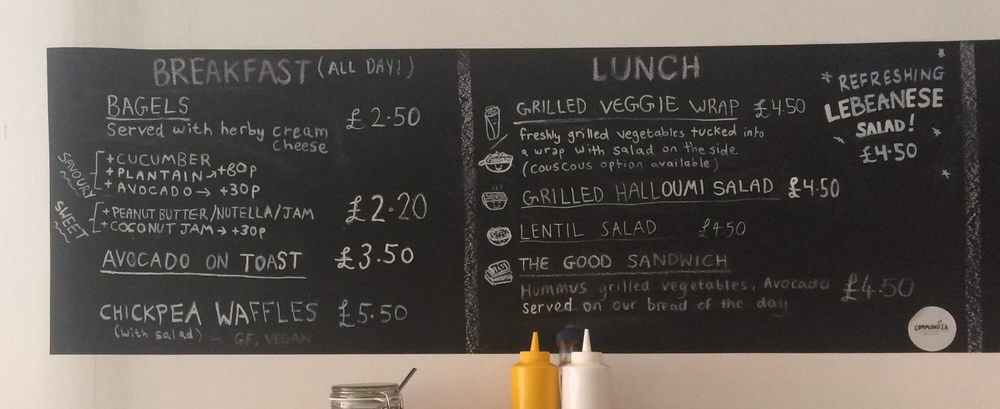 BREAKFAST (ALL DAY!)
BAGELS £2.50
Served with herby cream
cheese
SAVOURY
+CUCUMBER
+PLANTAIN → +80p
+AVOCADO → +30p
SWEET
+PEANUT BUTTER/NUTELLA/JAM £2.20
+COCONUT JAM → +30p
AVOCADO ON TOAST £3.50
CHICKPEA WAFFLES £5.50
(with salad) – GF, VEGAN
LUNCH
GRILLED VEGGIE WRAP £4.50
freshly grilled vegetables tucked into
a wrap with salad on the side
(couscous option available)
GRILLED HALLOUMI SALAD £4.50
LENTIL SALAD £4.50
THE GOOD SANDWICH
Hummus, grilled vegetables, Avocado £4.50
Served on our bread of the day
REFRESHING
LEBEANESE
SALAD!
£4.50
COMMUNITEA